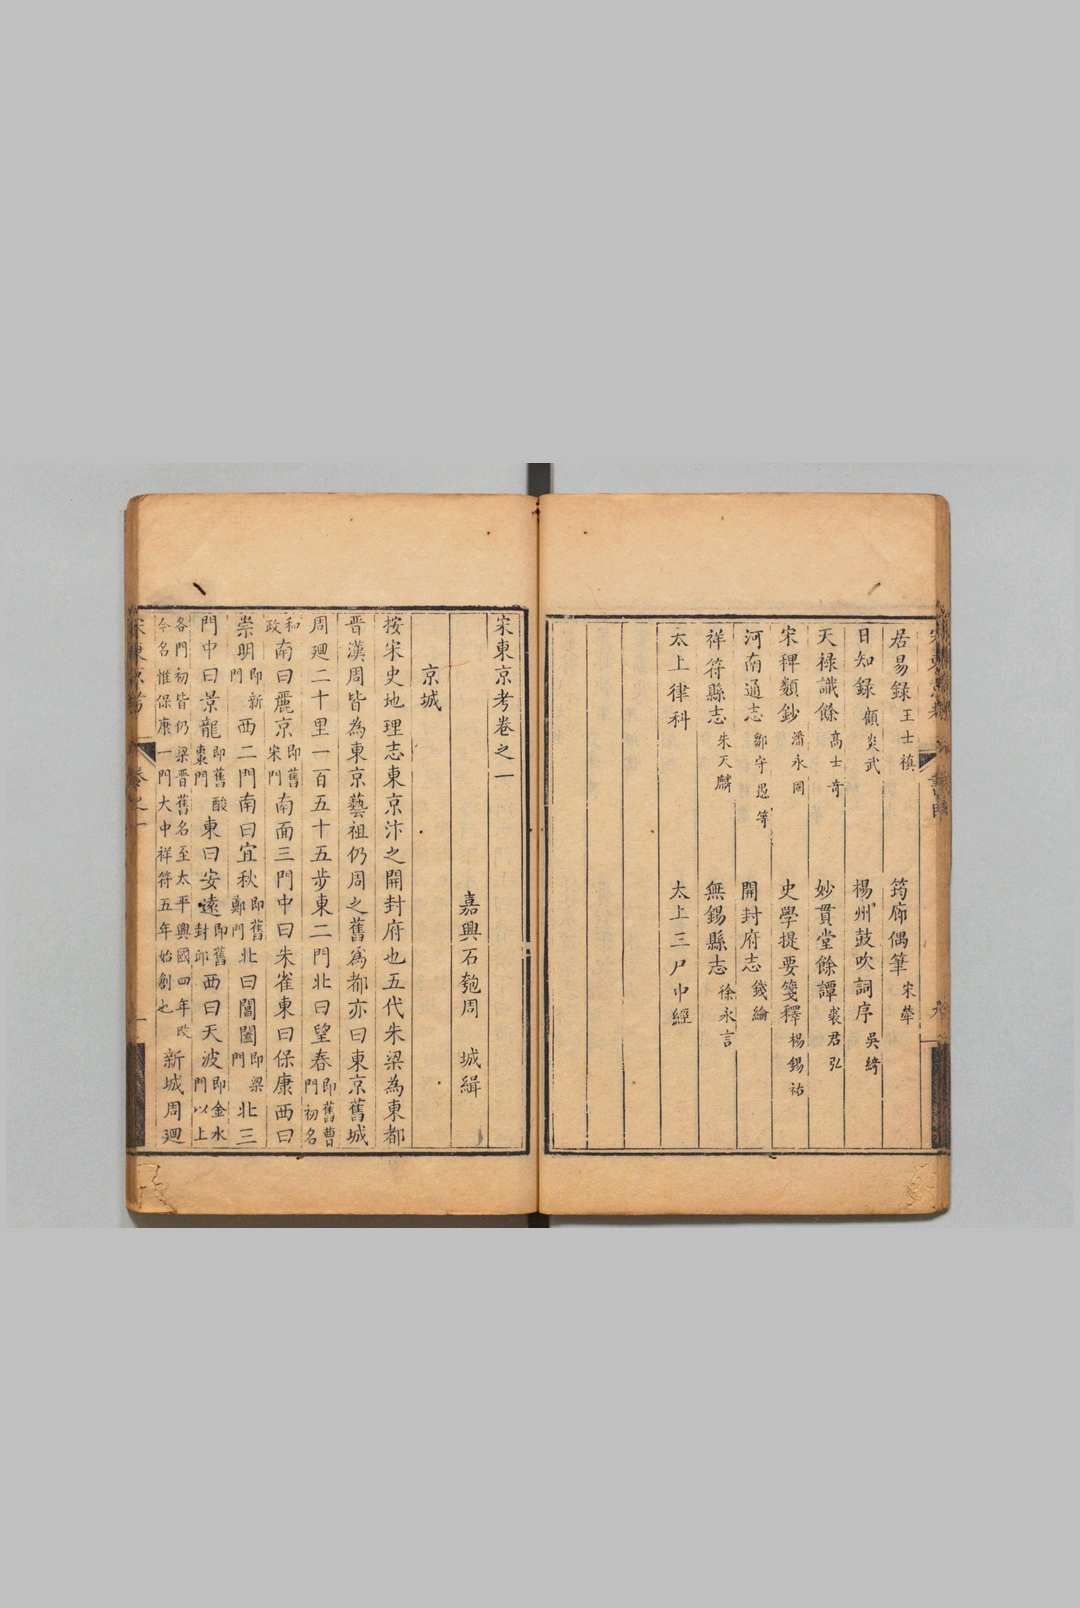 居易録 王士禛 筠廊偶筆 宋犖
日知録 顧炎武 楊州鼓吹詞序 吳綺
天禄識餘 高士奇 妙貫堂餘譚 裘君弘
宋稗類鈔 潘永因 史學提要箋釋 楊錫祐
河南通志 鄒守愚等 開封府志 錢綸
祥符縣志 朱天麟 無錫縣志 徐永言
太上律科 太上三尸中經
宋東京考卷之一
嘉興石匏周 城緝
京城
按宋史地理志東京汴之開封府也五代朱梁為東都
晋漢周皆為東京藝祖仍周之舊為都亦曰東京舊城
周廻二十里一百五十五步東二門北曰望春即舊曹門初名
和政南曰麗京即舊宋門南面三門中曰朱雀東曰保康西曰
崇明即新門西二門南曰宜秋即舊鄭門北曰閶闔即梁門北三
門中曰景龍即舊酸棗門東曰安遠即舊封邱門西曰天波即金水門以上
各門初皆仍梁晋舊名至太平興國四年改今名惟保康一門大中祥符五年始創也新城周廻
宋東京考 卷之一 一